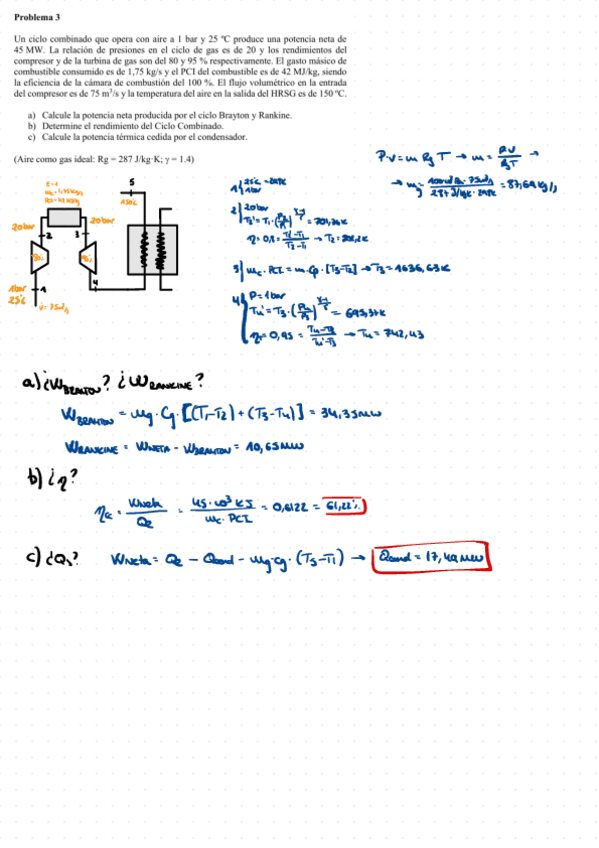 Problema 3
Un ciclo combinado que opera con aire a 1 bar y 25 ºC produce una potencia neta de
45 MW. La relación de presiones en el ciclo de gas es de 20 y los rendimientos del
compresor y de la turbina de gas son del 80 y 95 % respectivamente. El gasto másico de
combustible consumido es de 1,75 kg/s y el PCI del combustible es de 42 MJ/kg, siendo
la eficiencia de la cámara de combustión del 100 %. El flujo volumétrico en la entrada
del compresor es de 75 m³/s y la temperatura del aire en la salida del HRSG es de 150 ºC.
a) Calcule la potencia neta producida por el ciclo Brayton y Rankine.
b) Determine el rendimiento del Ciclo Combinado.
c) Calcule la potencia térmica cedida por el condensador.
(Aire como gas ideal: Rg = 287 J/kg·K; γ = 1.4)
P·V = m Rg T → m = PV/RgT →
→ mg = = 87,69 kg/s
1) 25ºC = 298K
1bar
2) 20bar
= 701,34K
η = 0,8 = T2'-T1/T2-T1 →
3) mc · PCI = m · Cp · [T3-T2] → T3 = 1636,63K
4) P = 1bar
T4' = T3 · = 695,37K
η = 0,95 = T4-T3/T4'-T3 → T4 = 742,43
20bar
2
3
20bar
5
150ºC
1bar
25ºC
1
4
V = 75m³/s
a) ¿WBRAYTON? ¿WRANKINE?
WBRAYTON = mg · Cg · [(T1-T2) + (T3-T4)] = 34,35MW
WRANKINE = WNETA - WBRAYTON = 10,65MW
b) ¿η?
= Wneta/Q2 = 45·10³ KJ/mc · PCI = 0,6122 = 61,22%
c) WNeta = Q2 - Qcond - mg·cg · (T5-T1) → Qcond = 17,49MW